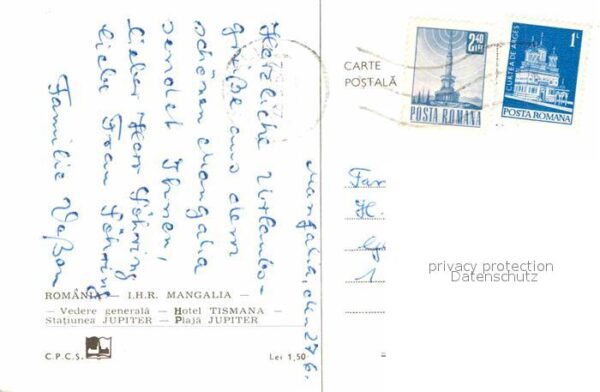 Mangalia, den 27.6.
Herzliche Urlaubs-
grüße aus dem
schönen Mangalia
sendet Ihnen,
lieber Herr Föhring
liebe Frau Föhring
Familie
CARTE
POȘTALĂ
2,40
LEI
POSTA ROMANA
1L
CURTEA DE ARGEȘ
POSTA ROMANA
Fam
H.
1
privacy protection
Datenschutz
ROMÂNIA — I.H.R. MANGALIA —
— Vedere generală — Hotel TISMANA —
Stațiunea JUPITER — Plajă JUPITER
C.P.C.S.
Lei 1,50